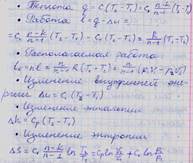 • Теплота q = C(T₂-T₁) = Cᵥ n-k/n-1 (T₂-T₁)
• Работа l = q - Δu =
= Cᵥ n-k/n-1 (T₂-T₁) - Cᵥ (T₂-T₁) = R/n-1 (T₁-T₂)
• Располагаемая работа
l₀ = nl = n/n-1 R(T₁-T₂) = n/n-1 (P₁V₁-P₂V₂)
• Изменение внутренней энергии
Δu = Cᵥ(T₂-T₁)
• Изменение энтальпии
Δh = Cₚ(T₂-T₁)
• Изменение энтропии
ΔS = Cᵥ n-k/n-1 ln T₂/T₁ =